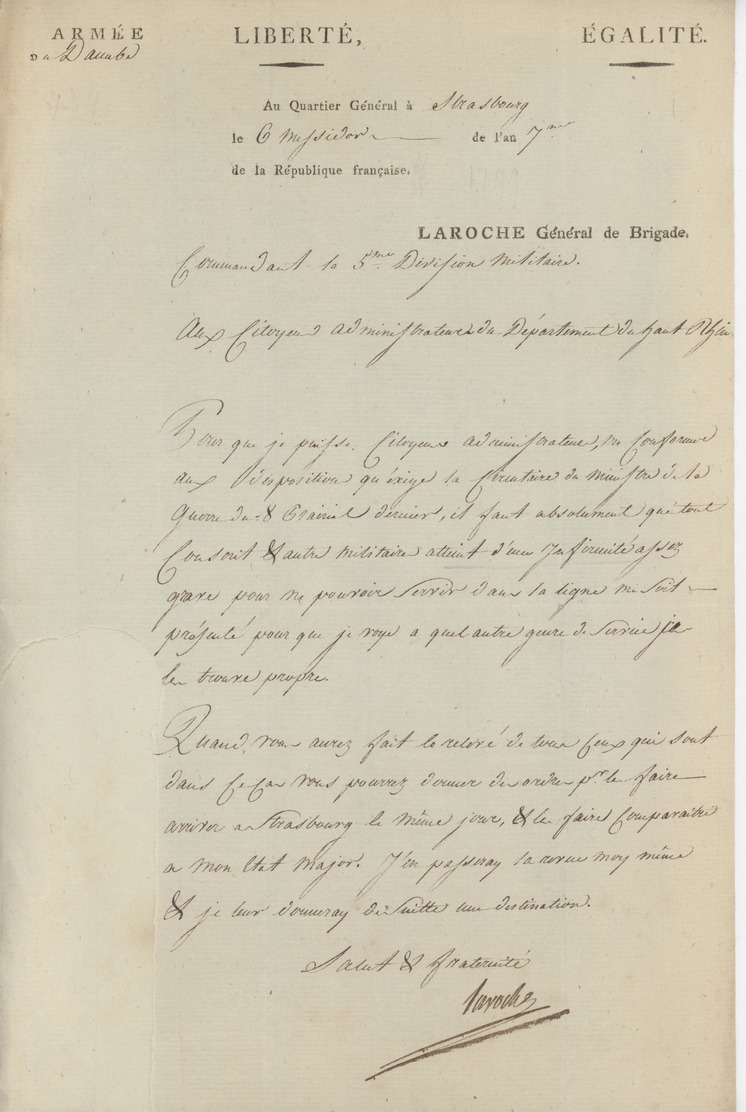 ARMÉE
LIBERTÉ,
ÉGALITÉ.
DU Danube
Au Quartier Général à Strasbourg
le 6 Messidor de l'an 7me
de la République française.
LAROCHE Général de Brigade,
Commandant la 5me Division Militaire.
Aux Citoyens administrateurs du Département du haut Rhin
Pour que je puisse, Citoyens administrateurs, me Conformer
aux dispositions qu'éxige la Circulaire du ministre de la
Guerre du 8 Prairial dernier, il faut absolument que tout
Conscrit & autre Militaire atteint d'une Infirmité assez
grave pour ne pouvoir Servir dans la ligne me Soit
présenté pour que je voye a quel autre genre de Service je
le trouve propre.
Quand vous aurez fait le relevé de tous Ceux qui sont
dans Ce Cas vous pourrez donner des ordres pr. les faire
arriver a Strasbourg le même jour, & les faire Comparaître
a mon Etat major. J'en passeray la revue moy même
& je leur donneray de Suitte une destination.
Salut & fraternité
Laroche